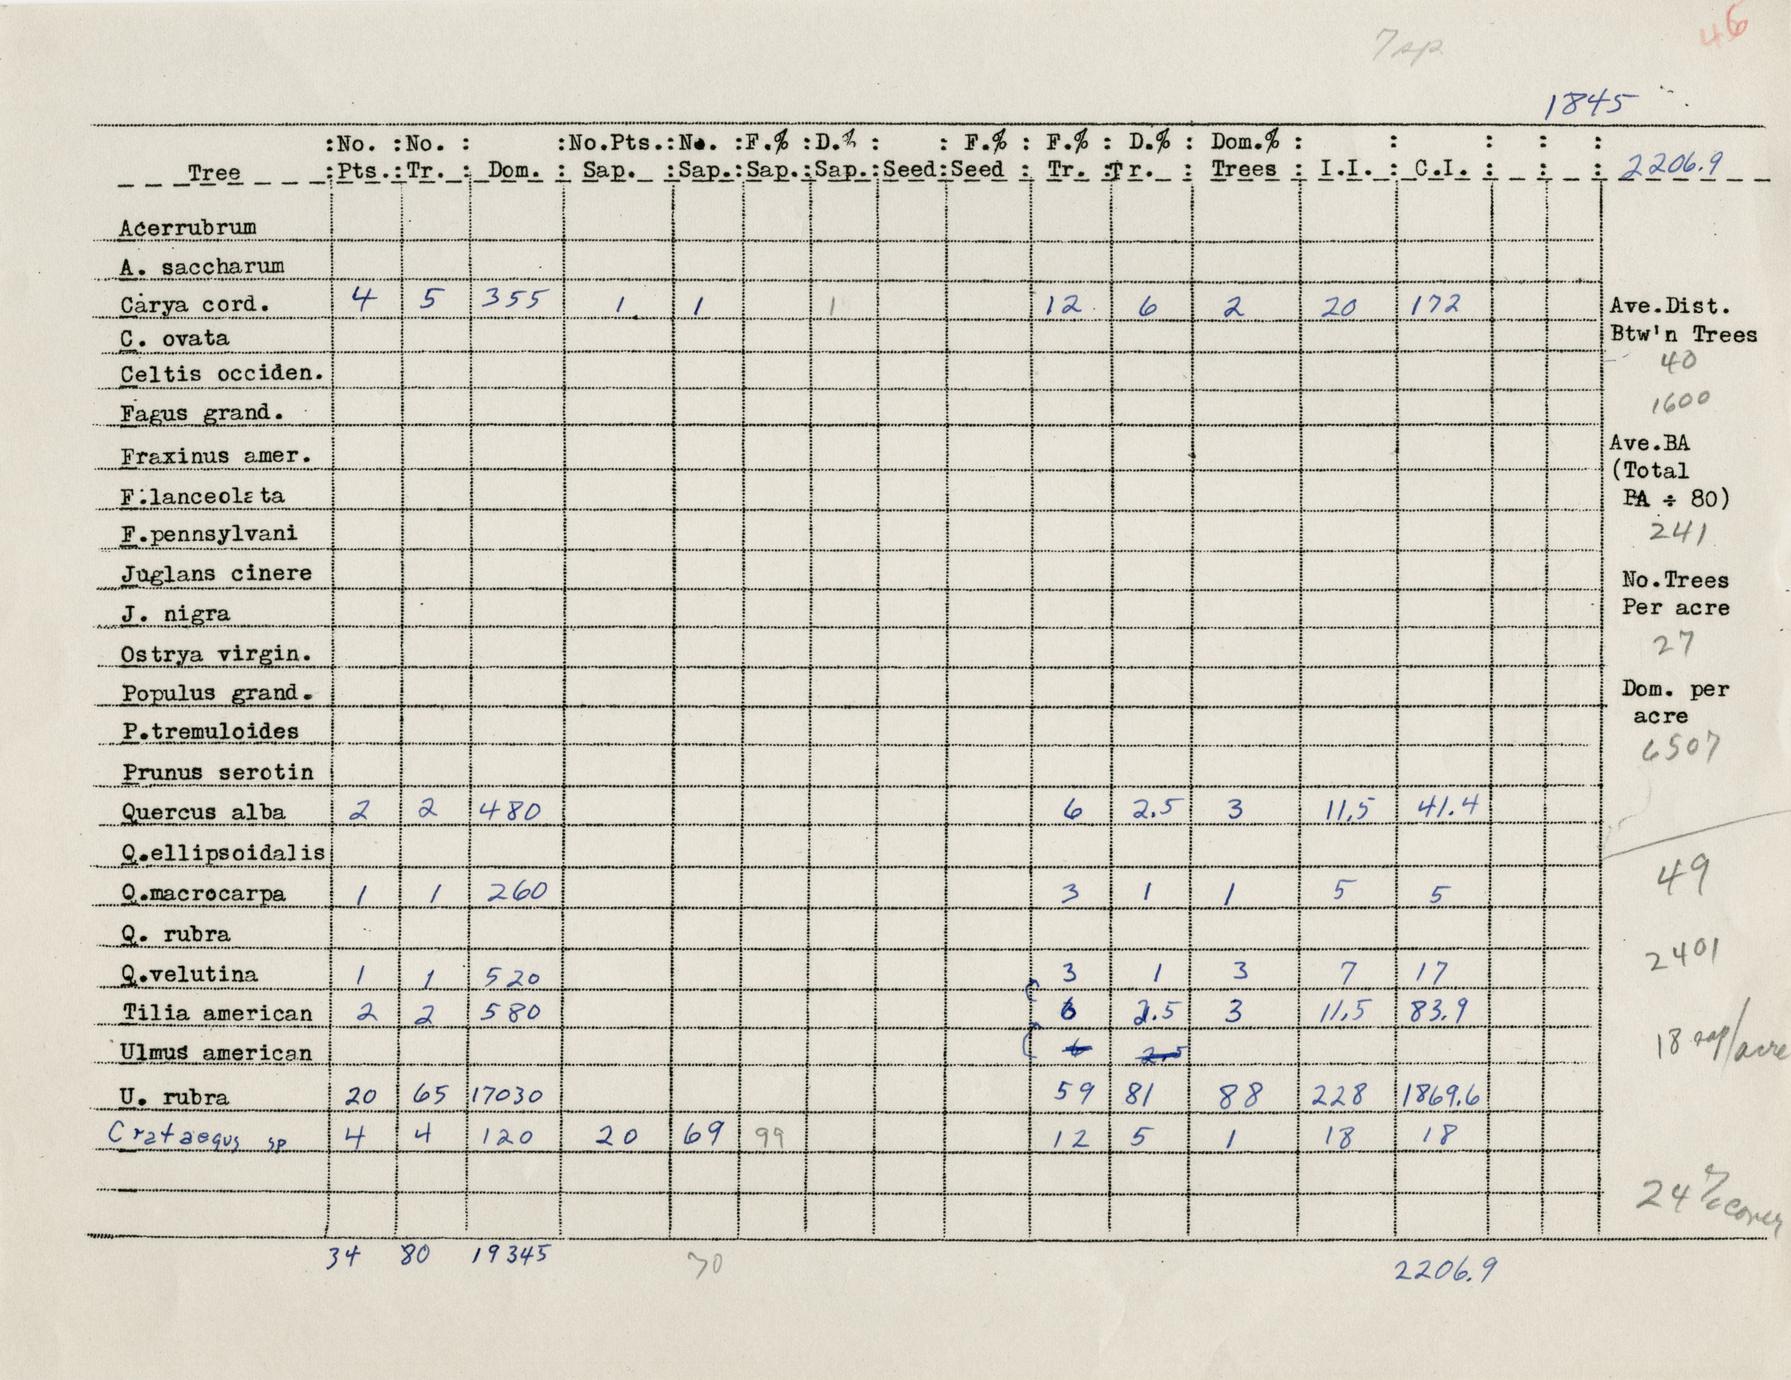 7 sp
46
1845
:No. :No. : :No.Pts.:No. :F.% :D.% : : F.% : F.% : D.% : Dom.% : : : : :
Tree :Pts.:Tr. : Dom. : Sap. :Sap.:Sap.:Sap.:Seed:Seed : Tr. :Tr. : Trees : I.I. : C.I. : : : 2206.9
Acerrubrum
A. saccharum
Carya cord. 4 5 355 1 1 1 12 6 2 20 172 Ave.Dist.
C. ovata Btw'n Trees
40
Celtis occiden.
1600
Fagus grand.
Ave.BA
Fraxinus amer. (Total
F.lanceolata BA ÷ 80)
F.pennsylvani 241
Juglans cinere No.Trees
J. nigra Per acre
27
Ostrya virgin.
Populus grand. Dom. per
acre
P.tremuloides 6507
Prunus serotin
Quercus alba 2 2 480 6 2.5 3 11.5 41.4
Q.ellipsoidalis
49
Q.macrocarpa 1 1 260 3 1 1 5 5
Q. rubra
2401
Q.velutina 1 1 520 3 1 3 7 17
Tilia american 2 2 580 6 2.5 3 11.5 83.9
18 sap/acre
Ulmus american 6 2.5
U. rubra 20 65 17030 59 81 88 228 1869.6
Crataegus sp 4 4 120 20 69 99 12 5 1 18 18
24% cover
34 80 19345 70 2206.9